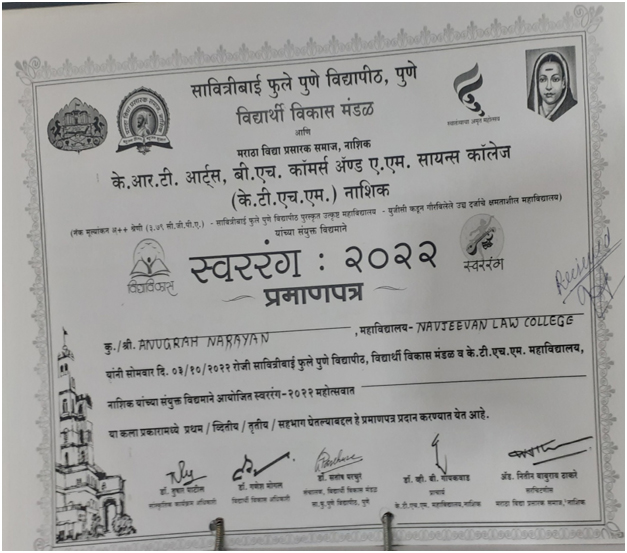 सावित्रीबाई फुले पुणे विद्यापीठ, पुणे
विद्यार्थी विकास मंडळ
आणि
मराठा विद्या प्रसारक समाज, नाशिक
के.आर.टी. आर्ट्स, बी.एच. कॉमर्स अँण्ड ए.एम. सायन्स कॉलेज
(के.टी.एच.एम.) नाशिक
(नॅक मूल्यांकन अ++ श्रेणी (३.७९ सी.जी.पी.ए.) - सावित्रीबाई फुले पुणे विद्यापीठ पुरस्कृत उत्कृष्ट महाविद्यालय - युजीसी कडून गौरविलेले उच्च दर्जाचे क्षमताशील महाविद्यालय)
यांच्या संयुक्त विद्यमाने
स्वातंत्र्याचा अमृत महोत्सव
विद्याविकास
स्वररंग : २०२२
स्वररंग
प्रमाणपत्र
Received
कु./श्री. ANUGRAH NARAYAN , महाविद्यालय- NAVJEEVAN LAW COLLEGE
यांनी सोमवार दि. ०३/१०/२०२२ रोजी सावित्रीबाई फुले पुणे विद्यापीठ, विद्यार्थी विकास मंडळ व के.टी.एच.एम. महाविद्यालय,
नाशिक यांच्या संयुक्त विद्यमाने आयोजित स्वररंग-२०२२ महोत्सवात
या कला प्रकारामध्ये प्रथम / द्वितीय / तृतीय / सहभाग घेतल्याबद्दल हे प्रमाणपत्र प्रदान करण्यात येत आहे.
डॉ. तुषार पाटील
सांस्कृतिक कार्यक्रम अधिकारी
डॉ. गणेश मोगल
विद्यार्थी विकास अधिकारी
डॉ. संतोष परचुरे
संचालक, विद्यार्थी विकास मंडळ
सा.फु. पुणे विद्यापीठ, पुणे
डॉ. व्ही. बी. गायकवाड
प्राचार्य
के.टी.एच.एम. महाविद्यालय, नाशिक
अॅड. नितीन बाबुराव ठाकरे
सरचिटणीस
मराठा विद्या प्रसारक समाज, नाशिक